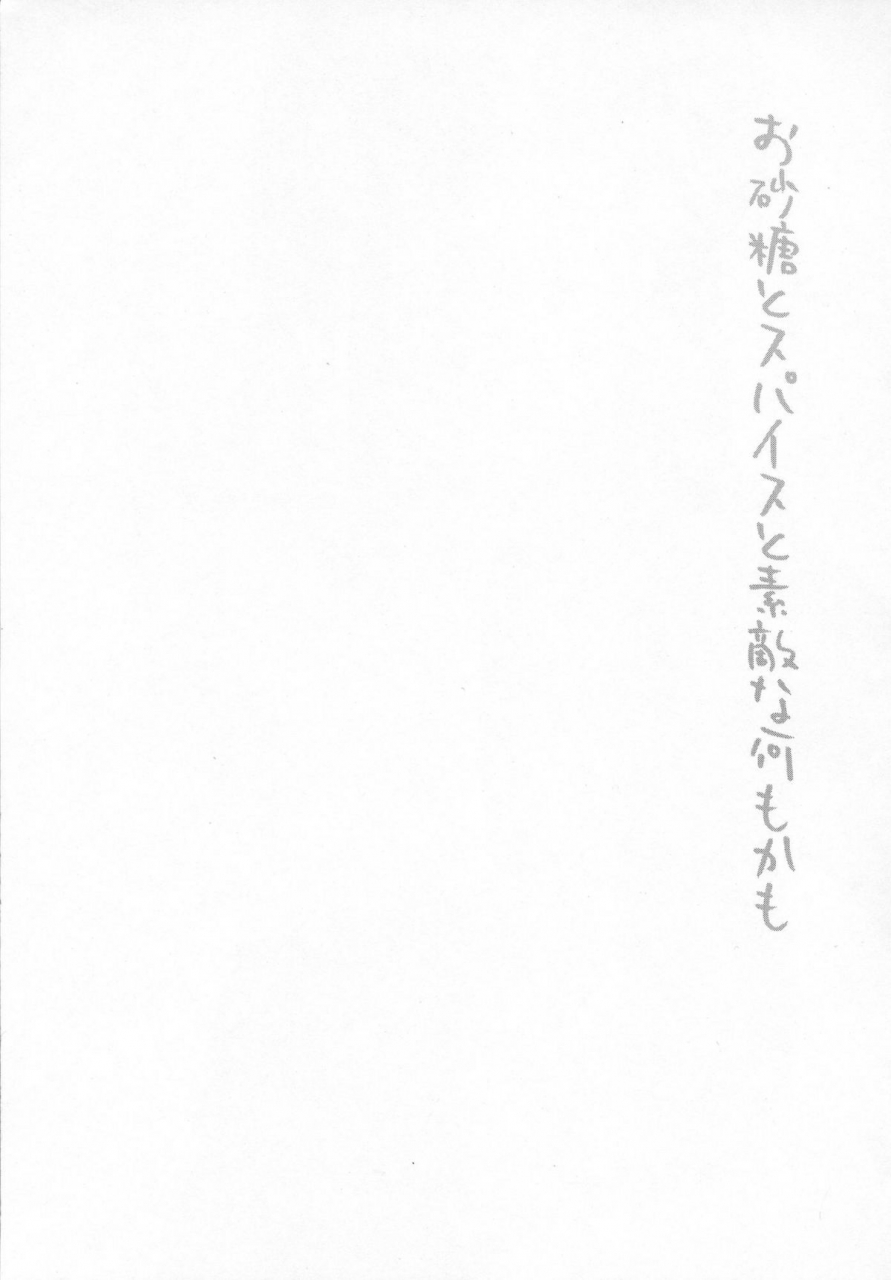 お砂糖とスパイスと素敵な何もかも